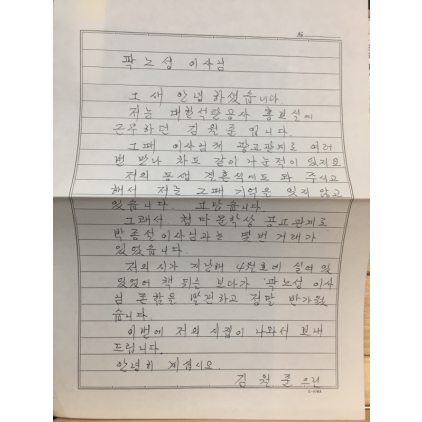 곽노성 이사님
그 새 안녕하셨습니다
저는 대한석탄공사 홍보실에
근무하던 김원준 입니다
그때 이사님께 광고관계로 여러
번 만나 차도 같이 나눈적이 있지요
저의 동생 결혼식에도 와 주시고
해서 저는 그때 기억을 잊지 않고
있습니다. 고맙습니다
그래서 광고관계로
박종선이사님과는 몇번 거래가
있었습니다
저의 시가 지난해 4월호에 실려 있
었어 책 보다가 곽노성 이사
님 존함을 발견하고 정말 반가웠
습니다.
이번에 저의 시집이 나와서 보내
드립니다.
안녕히 계십시오
김원준 드림